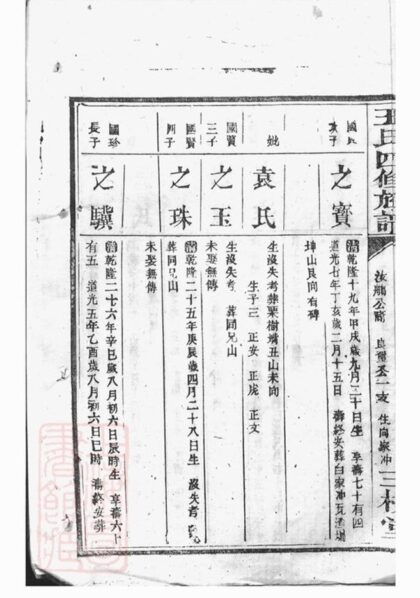 王氏四修族譜
汝
公
生向家冲
三
國
次子
之寶
清乾隆十九年甲戌歲九月二十日生 享壽七十有四
道光七年丁亥歲二月十五日 壽終安葬白家冲瓦
艮向有碑
妣
袁氏
生沒失考葬栗樹
丑山未向
生子三 正安 正虎 正文
國賢
三子
之玉
生沒失考 葬同兄山
未娶無傳
國賢
四子
之珠
清乾隆二十五年庚辰歲四月二十八日生 沒失考
葬同兄山
未娶無傳
國珍
長子
之驥
清乾隆二十六年辛巳歲八月初六日辰時生 享壽六十
有五 道光五年乙酉歲八月初六日巳時 壽終安葬